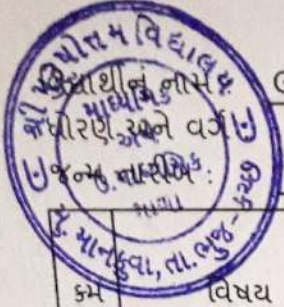 શ્રી પુરુષોત્તમ વિદ્યાલય
વિદ્યાર્થીનું નામ :
માધ્યમિક
ધોરણ અને વર્ગ :
અને
જન્મ તારીખ :
શાળા
મુ. માનકુવા, તા. ભુજ - કચ્છ
ક્રમ
વિષય